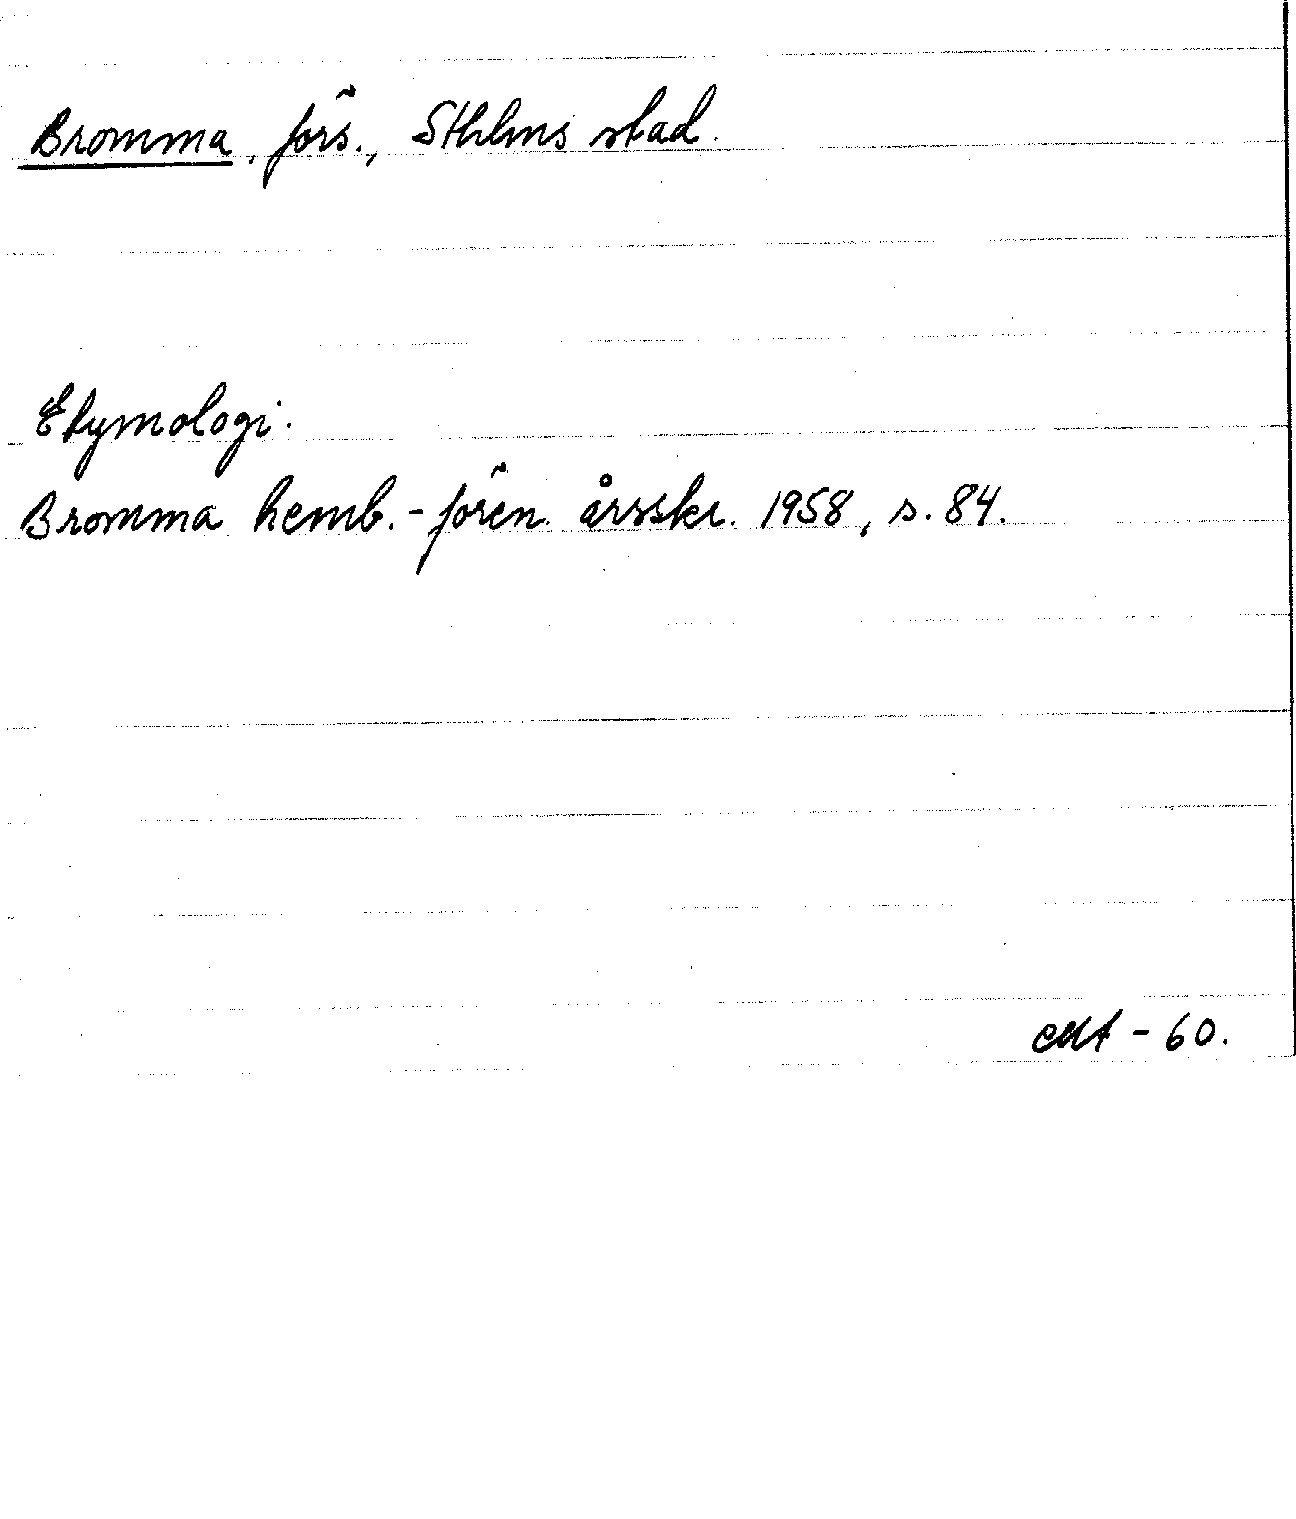 Bromma, förs., Sthlms stad.
Etymologi.
Bromma hemb.-fören. årsskr. 1958, s. 84.
- 60.